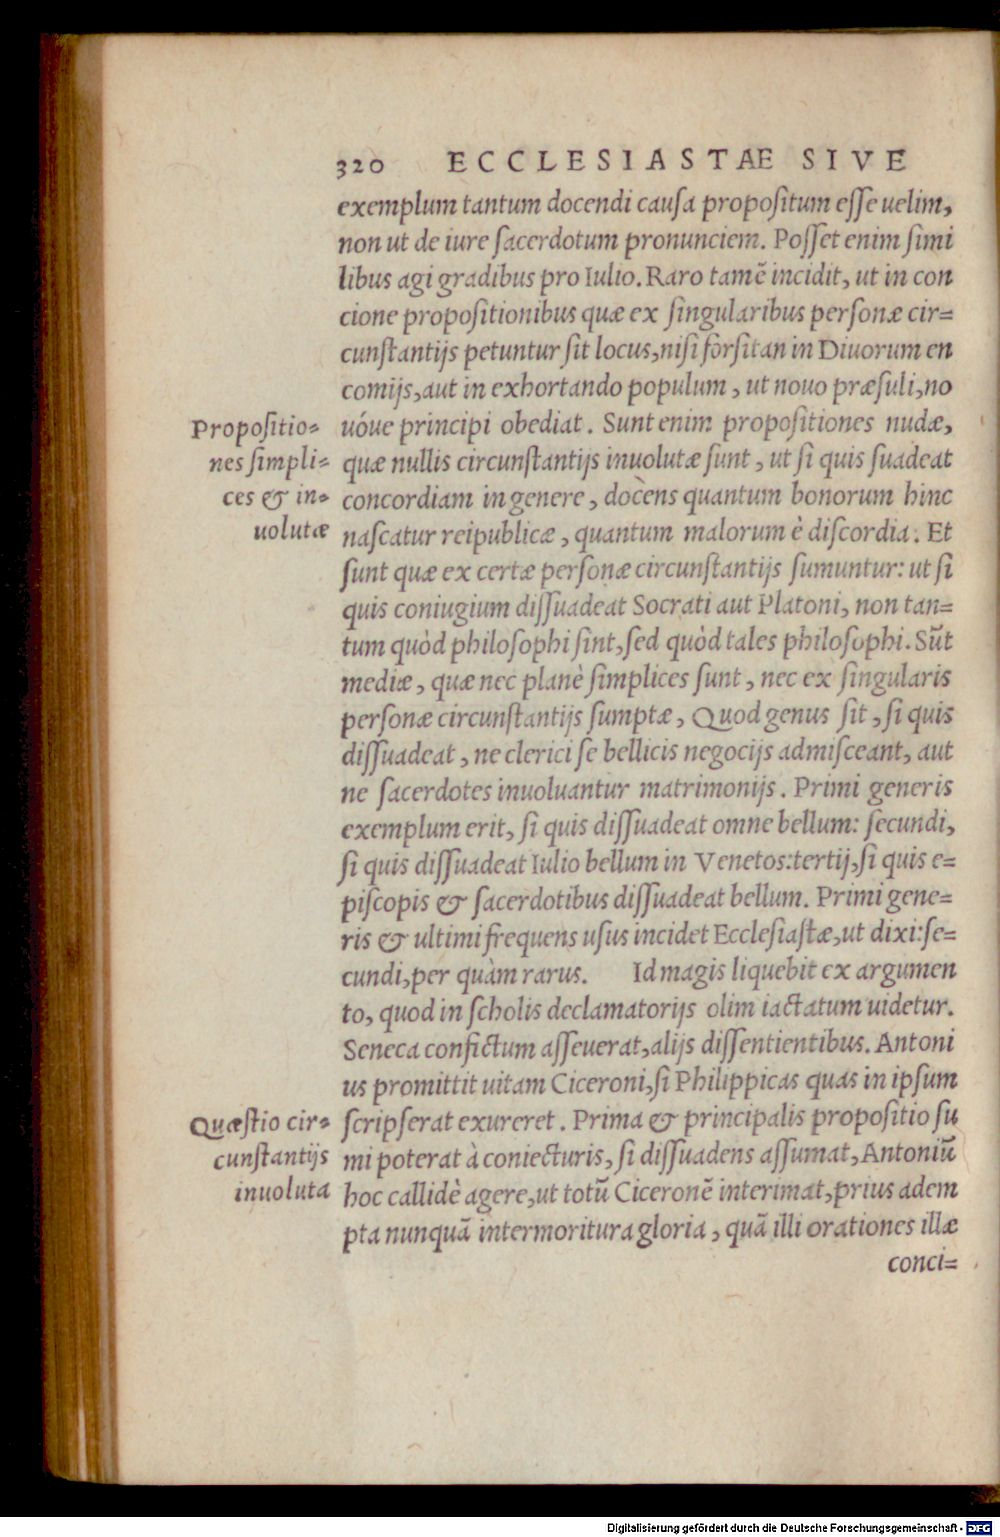 320 ECCLESIASTAE SIVE
exemplum tantum docendi causa propositum esse uelim,
non ut de iure sacerdotum pronunciem. Posset enim simi
libus agi gradibus pro Iulio. Raro tamẽ incidit, ut in con
cione propositionibus quæ ex singularibus personæ cir=
cunstantijs petuntur sit locus, nisi forsitan in Diuorum en
comijs, aut in exhortando populum, ut nouo præsuli, no
uóue principi obediat. Sunt enim propositiones nudæ,
quæ nullis circunstantijs inuolutæ sunt, ut si quis suadeat
concordiam in genere, docens quantum bonorum hinc
nascatur reipublicæ, quantum malorum è discordia. Et
sunt quæ ex certæ personæ circunstantijs sumuntur: ut si
quis coniugium dissuadeat Socrati aut Platoni, non tan=
tum quòd philosophi sint, sed quòd tales philosophi. Sũt
mediæ, quæ nec planè simplices sunt, nec ex singularis
personæ circunstantijs sumptæ, Quod genus sit, si quis
dissuadeat, ne clerici se bellicis negocijs admisceant, aut
ne sacerdotes inuoluantur matrimonijs. Primi generis
exemplum erit, si quis dissuadeat omne bellum: secundi,
si quis dissuadeat Iulio bellum in Venetos: tertij, si quis e=
piscopis & sacerdotibus dissuadeat bellum. Primi gene=
ris & ultimi frequens usus incidet Ecclesiastæ, ut dixi: se=
cundi, per quàm rarus. Id magis liquebit ex argumen
to, quod in scholis declamatorijs olim iactatum uidetur.
Seneca confictum asseuerat, alijs dissentientibus. Antoni
us promittit uitam Ciceroni, si Philippicas quas in ipsum
scripserat exureret. Prima & principalis propositio su
mi poterat à coniecturis, si dissuadens assumat, Antoniũ
hoc callidè agere, ut totũ Ciceronẽ interimat, prius adem
pta nunquã intermoritura gloria, quã illi orationes illæ
conci=
Propositio=
nes simpli=
ces & in=
uolutæ
Quæstio cir=
cunstantijs
inuoluta
Digitalisierung gefördert durch die Deutsche Forschungsgemeinschaft - DFG